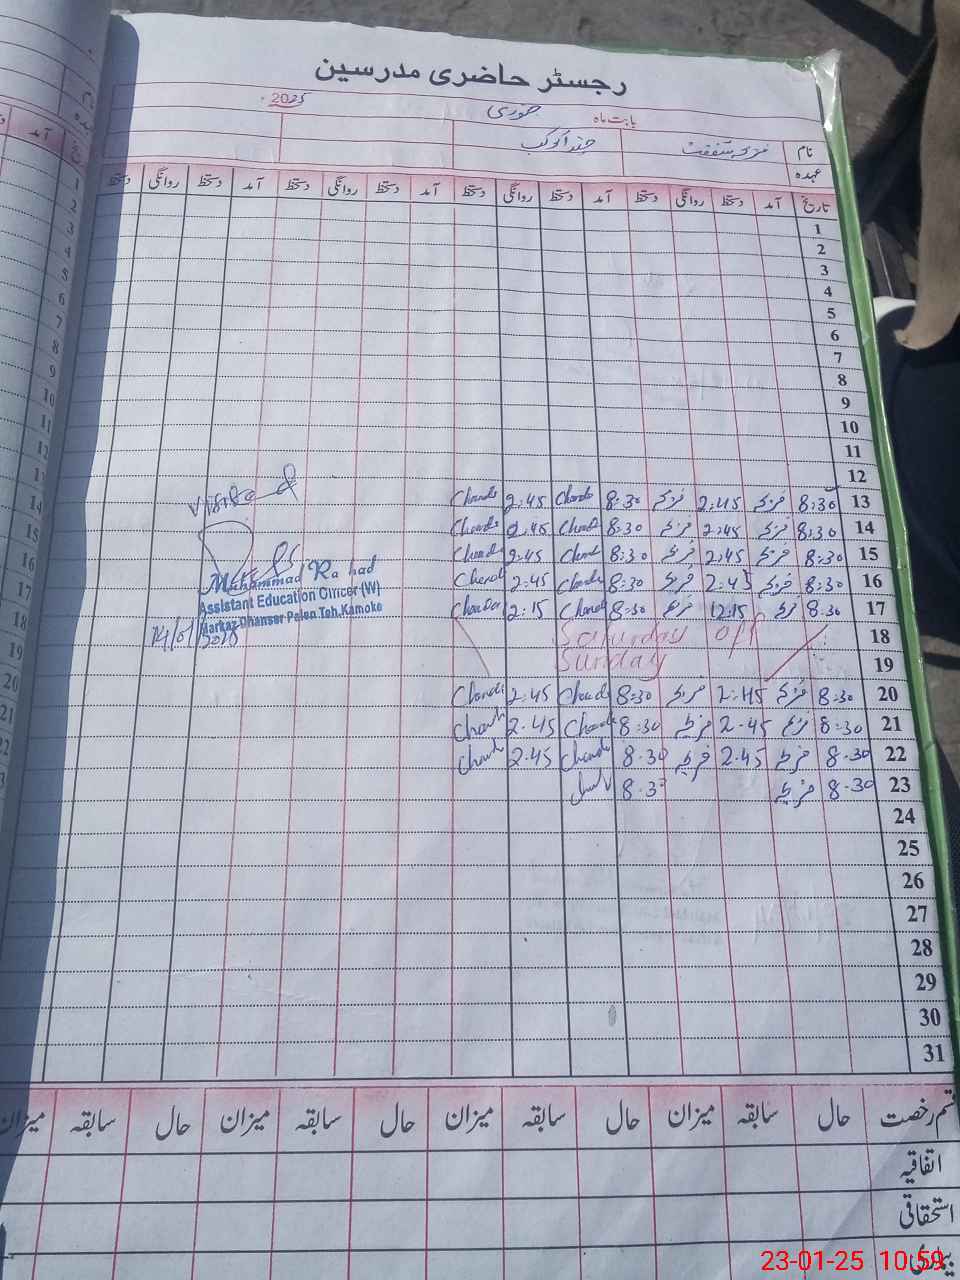 رجسٹر حاضری مدرسین
بابت ماہ جنوری 2025
نام فریحہ شفقت چندا کوکب
عہدہ
تاریخ آمد دستخط روانگی دستخط آمد دستخط روانگی دستخط آمد دستخط روانگی دستخط آمد دستخط روانگی دستخط
1
2
3
4
5
6
7
8
9
10
11
12
13 8:30 فریحہ 2:45 فریحہ 8:30 Chanda 2:45 Chanda
14 8:30 فریحہ 2:45 فریحہ 8:30 Chanda 2:45 Chanda
15 8:30 فریحہ 2:45 فریحہ 8:30 Chanda 2:45 Chanda
16 8:30 فریحہ 2:45 فریحہ 8:30 Chanda 2:45 Chanda
17 8:30 فریحہ 12:15 فریحہ 8:30 Chanda 2:15 Chanda
18 Saturday off
19 Sunday
20 8:30 فریحہ 2:45 فریحہ 8:30 Chanda 2:45 Chanda
21 8:30 فریحہ 2.45 فریحہ 8:30 Chanda 2.45 Chanda
22 8.30 فریحہ 2.45 فریحہ 8.30 Chanda 2.45 Chanda
23 8.30 فریحہ 8.3
24
25
26
27
28
29
30
31
Visited
Muhammad Ra had
Assistant Education Officer (W)
Markaz Dhanser Paien Teh.Kamoke
14/01/2025
قسم رخصت حال سابقہ میزان حال سابقہ میزان حال سابقہ میزان حال سابقہ میزان
اتفاقیہ
استحقاقی
بیماری
آمد
1
2
3
4
5
6
7
8
9
10
11
12
13
14
15
16
17
18
19
20
21
22
23-01-25 10:59